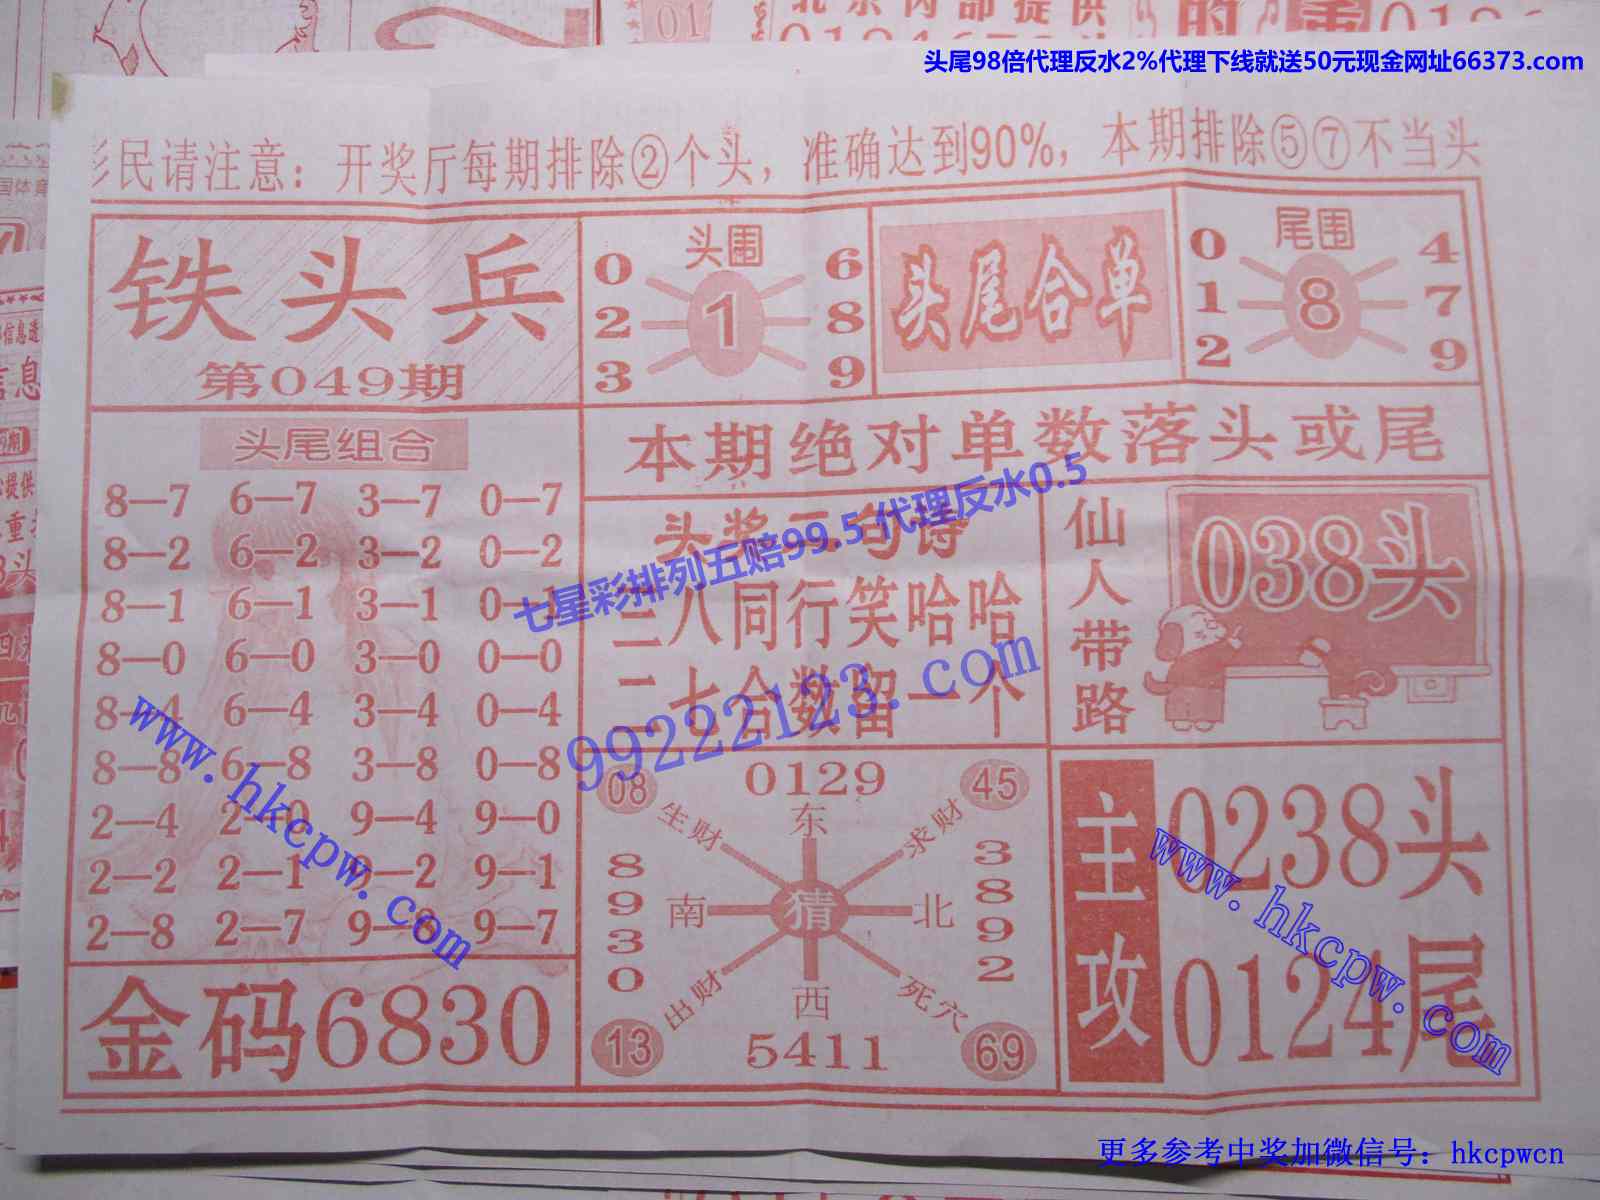 北京内部提供
头尾98倍代理反水2%代理下线就送50元现金网址66373.com
彩民请注意：开奖厅每期排除②个头，准确达到90%，本期排除⑤⑦不当头
铁头兵
第049期
头围
0 6
2 1 8
3 9
头尾合单
尾围
0 4
1 8 7
2 9
本期绝对单数落头或尾
头尾组合
8—7 6—7 3—7 0—7
8—2 6—2 3—2 0—2
8—1 6—1 3—1 0—1
8—0 6—0 3—0 0—0
8—4 6—4 3—4 0—4
8—8 6—8 3—8 0—8
2—4 2—0 9—4 9—0
2—2 2—1 9—2 9—1
2—8 2—7 9—8 9—7
金码6830
头奖二句诗
三八同行笑哈哈
二七合数留一个
七星彩排列五赔99.5 代理反水0.5
99222123.com
仙人带路
038头
08 0129 45
生财 东 求财
8930 南 猜 北 3892
出财 西 死穴
13 5411 69
主攻
0238头
0124尾
www.hkcpw.com
www.hkcpw.com
更多参考中奖加微信号：hkcpwcn